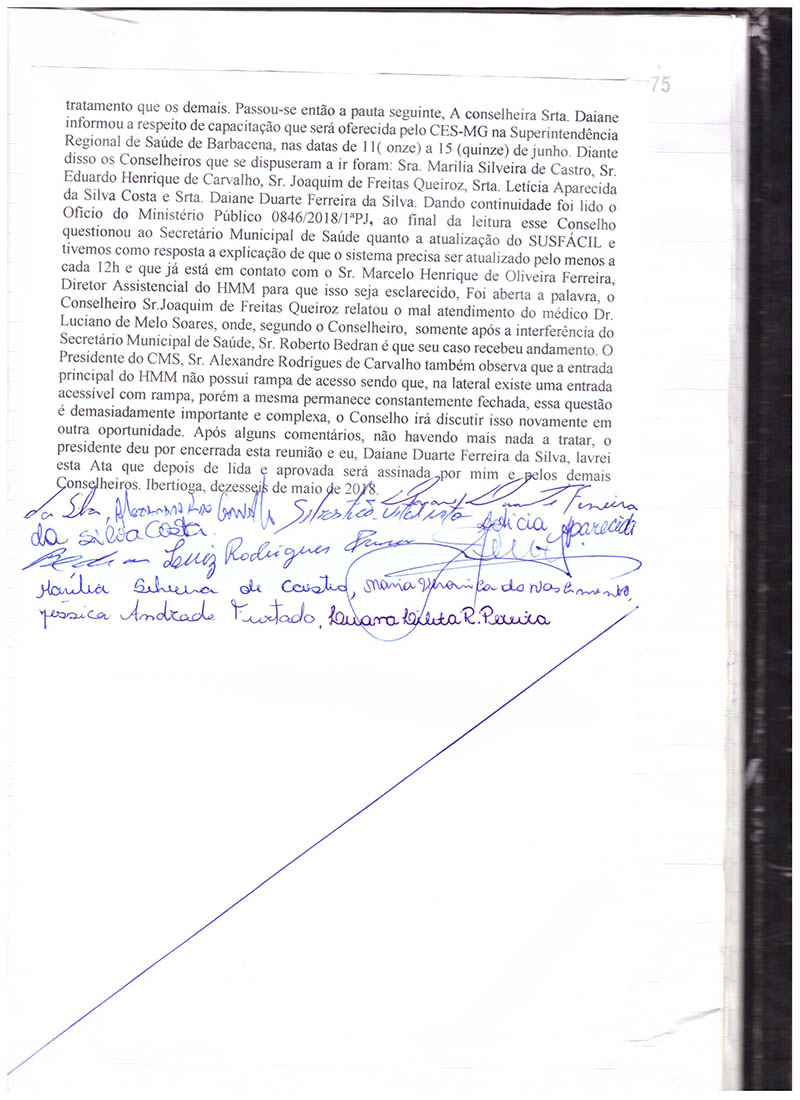 75
tratamento que os demais. Passou-se então a pauta seguinte, A conselheira Srta. Daiane
informou a respeito de capacitação que será oferecida pelo CES-MG na Superintendência
Regional de Saúde de Barbacena, nas datas de 11( onze) a 15 (quinze) de junho. Diante
disso os Conselheiros que se dispuseram a ir foram: Sra. Marilia Silveira de Castro, Sr.
Eduardo Henrique de Carvalho, Sr. Joaquim de Freitas Queiroz, Srta. Letícia Aparecida
da Silva Costa e Srta. Daiane Duarte Ferreira da Silva. Dando continuidade foi lido o
Ofício do Ministério Público 0846/2018/1ªPJ, ao final da leitura esse Conselho
questionou ao Secretário Municipal de Saúde quanto a atualização do SUSFÁCIL e
tivemos como resposta a explicação de que o sistema precisa ser atualizado pelo menos a
cada 12h e que já está em contato com o Sr. Marcelo Henrique de Oliveira Ferreira,
Diretor Assistencial do HMM para que isso seja esclarecido, Foi aberta a palavra, o
Conselheiro Sr.Joaquim de Freitas Queiroz relatou o mal atendimento do médico Dr.
Luciano de Melo Soares, onde, segundo o Conselheiro, somente após a interferência do
Secretário Municipal de Saúde, Sr. Roberto Bedran é que seu caso recebeu andamento. O
Presidente do CMS, Sr. Alexandre Rodrigues de Carvalho também observa que a entrada
principal do HMM não possui rampa de acesso sendo que, na lateral existe uma entrada
acessível com rampa, porém a mesma permanece constantemente fechada, essa questão
é demasiadamente importante e complexa, o Conselho irá discutir isso novamente em
outra oportunidade. Após alguns comentários, não havendo mais nada a tratar, o
presidente deu por encerrada esta reunião e eu, Daiane Duarte Ferreira da Silva, lavrei
esta Ata que depois de lida e aprovada será assinada por mim e pelos demais
Conselheiros. Ibertioga, dezesseis de maio de 2018.
Ferreira
da Silva, Aparecida
da Silva Costa.
Luiz Rodrigues
Marília Silveira de Castro, Maria Verônica do Nascimento,
Jéssica Andrade Furtado, Luana R. Pereira